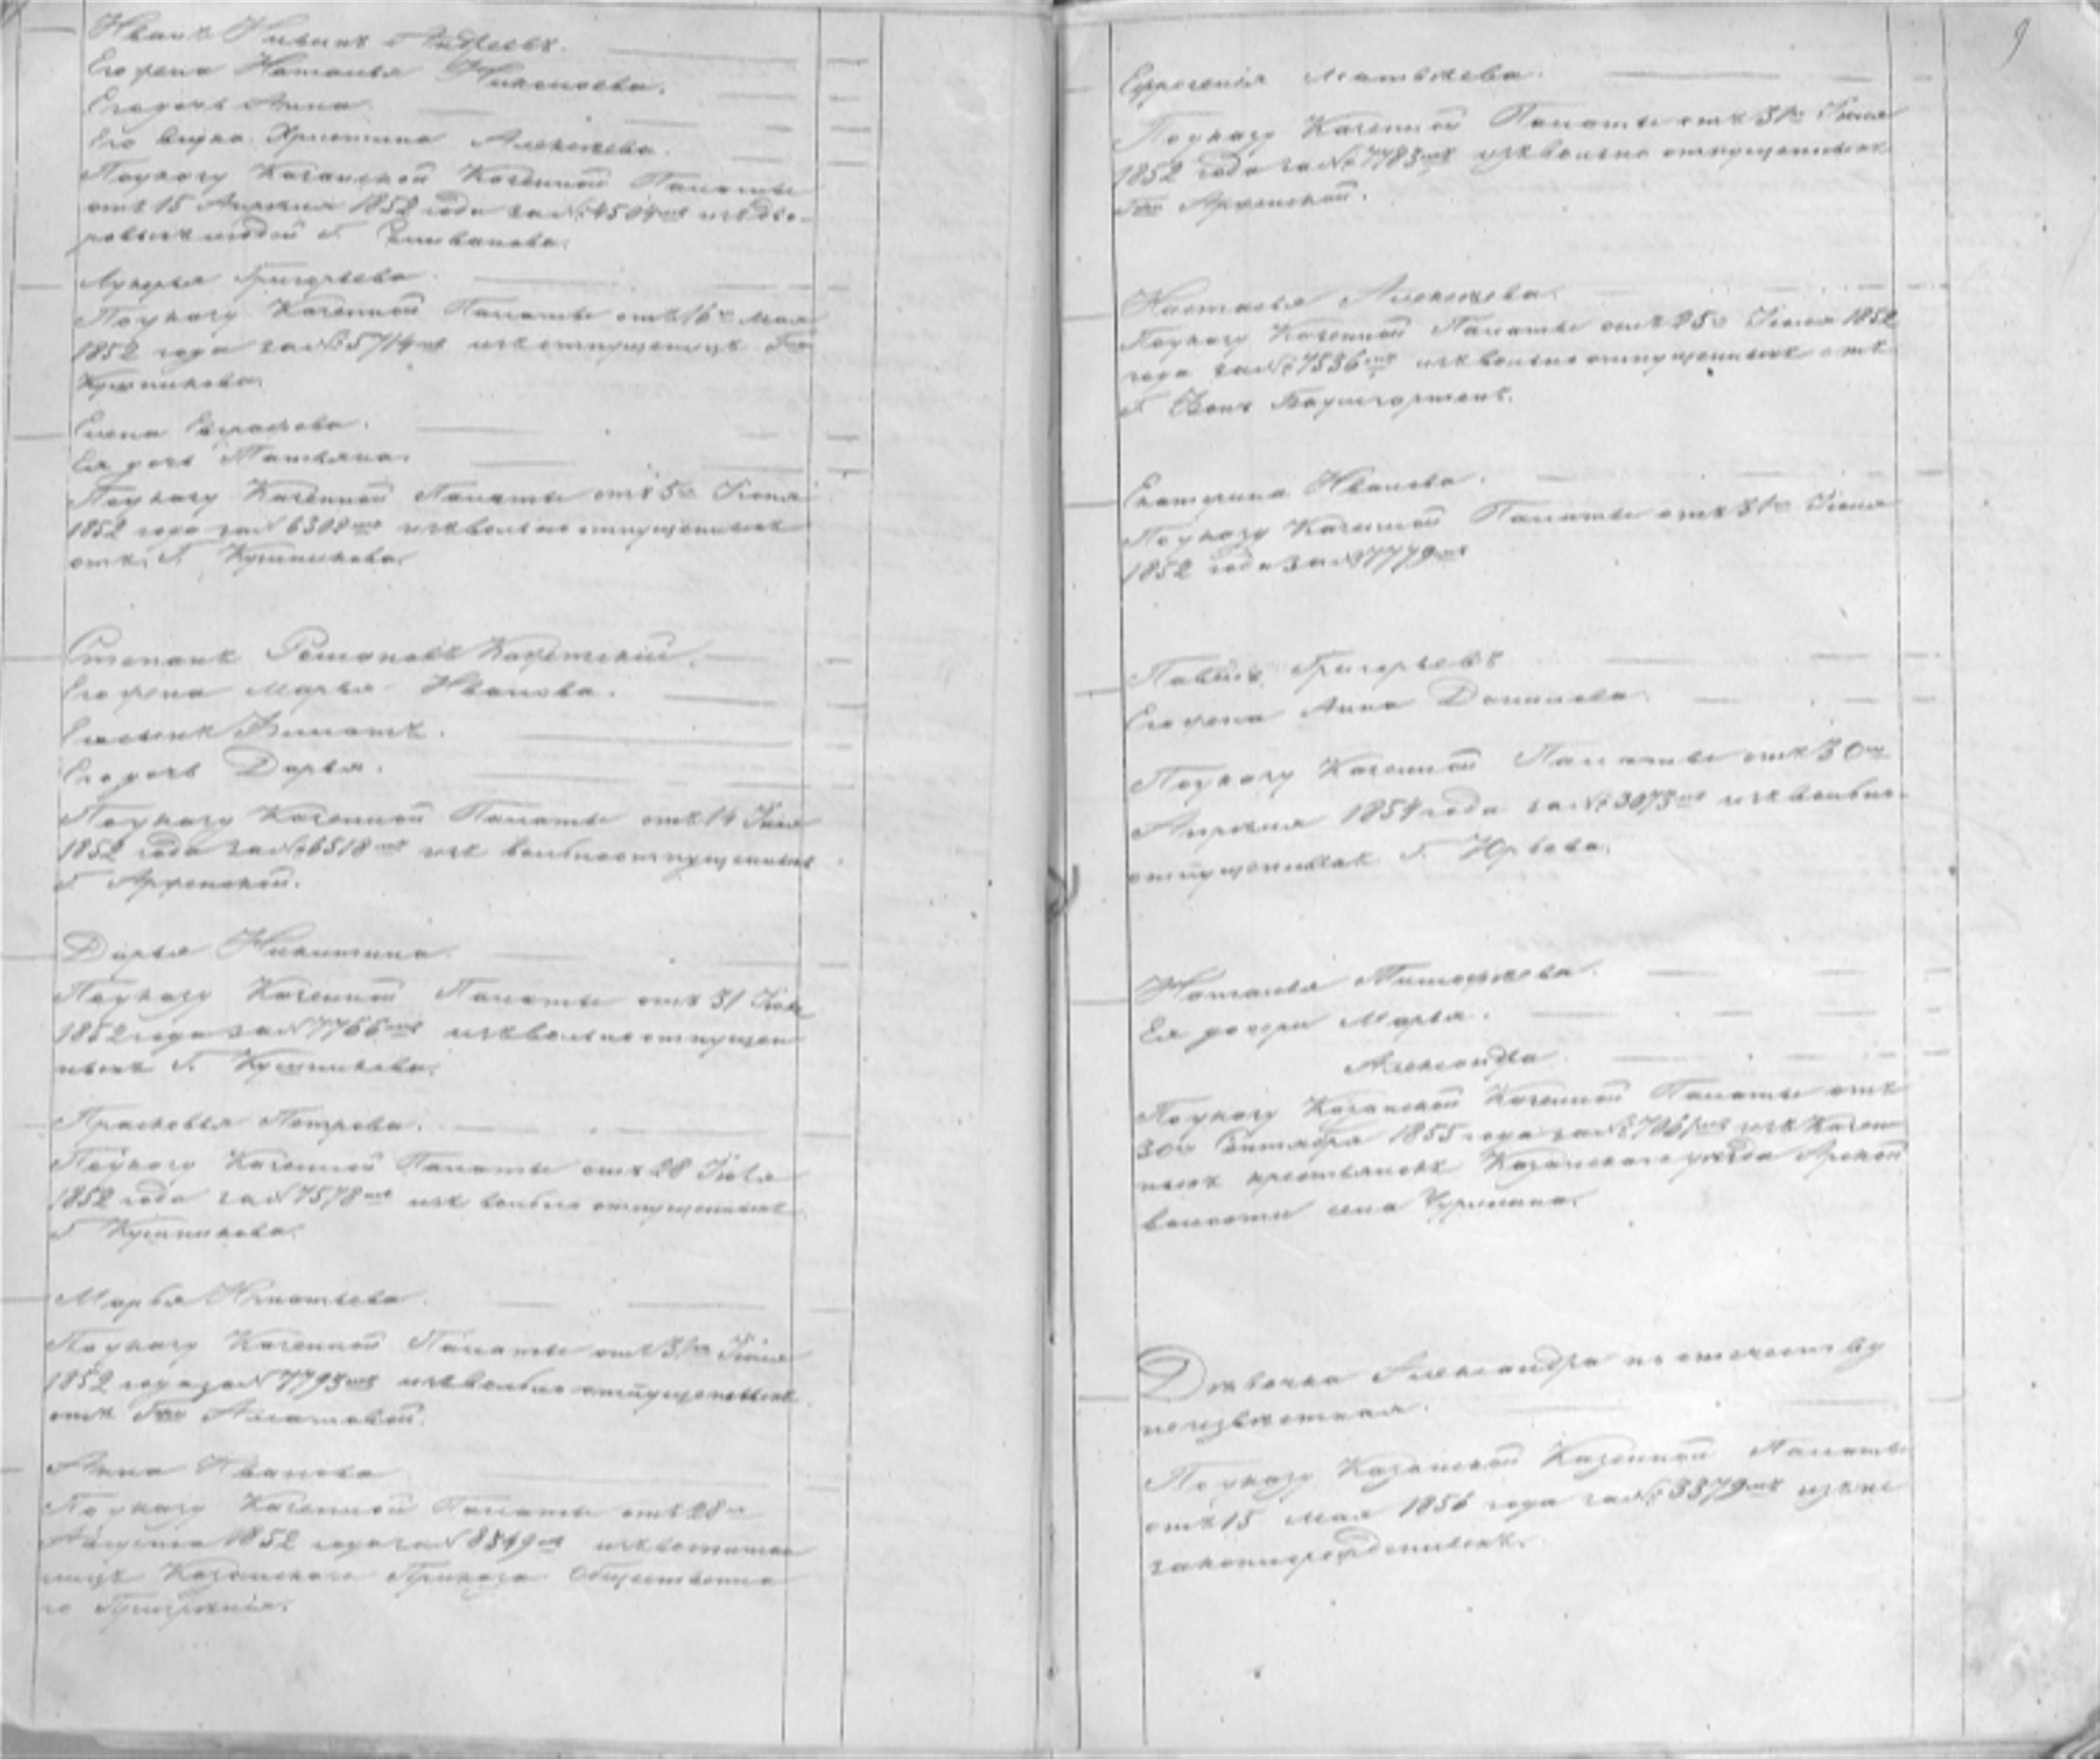 Иванъ Андреевъ.
Его жена Наталья Николаева.
Его дочь Анна
Его внука Христина Алексѣева.
По указу Казанской Казенной Палаты
отъ 15 Апрѣля 1852 года за № 4504мъ изъ дво-
ровыхъ людей Г. Селиванова.
Лукерья Григорьева
По указу Казенной Палаты отъ 16го Мая
1852 года за № 5714мъ изъ отпущеницъ Гна
Кушникова.
Елена Евграфова.
Ея дочь Татьяна.
По указу Казенной Палаты отъ 5го Іюня
1852 года за № 6308мъ изъ вольно отпущенныхъ
отъ Г. Кушникова.
Степанъ Романовъ
Его жена Марья Иванова.
Его сынъ Филатъ.
Его дочь Дарья.
По указу Казенной Палаты отъ 14 Іюня
1852 года за № 6518мъ изъ вольноотпущенныхъ
Г.
Дарья Никитина
По указу Казенной Палаты отъ 31 Іюля
1852 года за № 7766мъ изъ вольно отпущен
ныхъ Г. Кушникова.
Прасковья Петрова.
По указу Казенной Палаты отъ 28 Іюля
1852 года за № 7578мъ изъ вольно отпущенныхъ
Г. Кушникова.
Марья Игнатьева
По указу Казенной Палаты отъ 31го Іюля
1852 года за № 7793мъ изъ вольно отпущенныхъ
отъ Гжи
Анна Иванова
По указу Казенной Палаты отъ 28го
Августа 1852 года за № 8349мъ изъ воспитан
ницъ Казанскаго Приказа Общественна
го Призрѣнія.
9
Ефросинія Матвѣева.
По указу Казенной Палаты отъ 31го Іюля
1852 года за № 7783мъ изъ вольно отпущенныхъ
Гжи
Настасья Алексѣева.
По указу Казенной Палаты отъ 25го Іюля 1852
года за № 7536мъ изъ вольно отпущенныхъ отъ
Г. Фонъ Баумгартенъ.
Екатерина Иванова.
По указу Казенной Палаты отъ 31го Іюля
1852 года за № 7779мъ
Павелъ Григорьевъ
Его жена Анна Данилова.
По указу Казенной Палаты отъ 30го
Апрѣля 1854 года за № 3073мъ изъ вольно-
отпущенныхъ Г. Юрьева.
Наталья Тимофѣева.
Ея дочери Марья.
Александра
По указу Казанской Казенной Палаты отъ
30го Сентября 1855 года за № 7061мъ изъ Казен
ныхъ крестьянокъ Казанскаго уѣзда Арской
волости села Чурилина.
Дѣвочка Александра по отечеству
неизвѣстная.
По указу Казанской Казенной Палаты
отъ 15 Мая 1856 года за № 3379мъ изъ не
законнорожденныхъ.